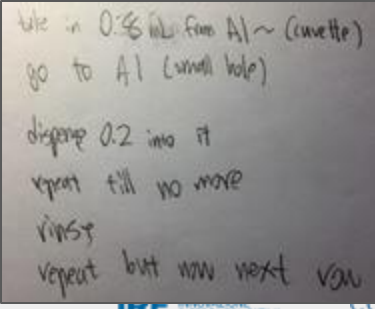 take in 0.8 mL from A1~ (cuvette)
go to A1 (small hole)
dispense 0.2 into it
repeat till no more
rinse
repeat but now next row
INNOVAZIONE